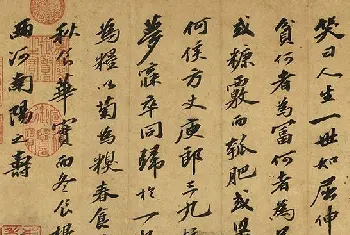 笑曰人生一世如屈伸
貧何者為富何者為
或糠覈而瓠肥或
何侯方丈庾郎三九
夢寐卒同歸於一
為糧以菊為糗春食
秋食華實而冬食根
西河南陽之壽